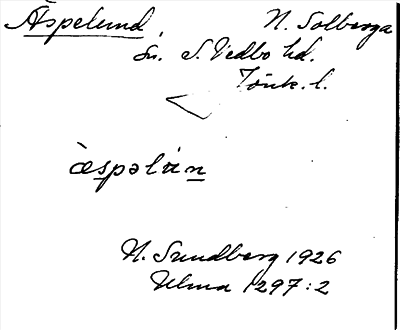 Äspelund, N. Solberga
Sn. S. Vedbo hd.
Jönk. l.
æspəlun
H. Sundberg 1926
Ulma 1297:2